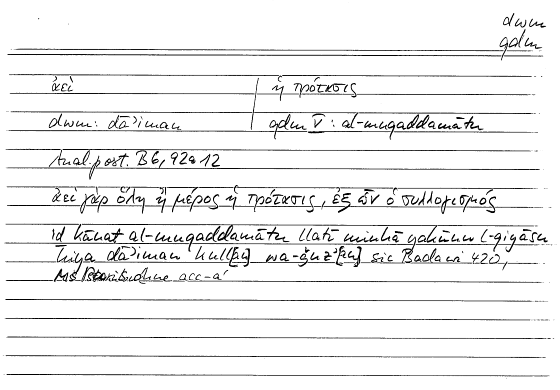 dwm
qdm
ἀεὶ | ἡ πρότασις
dwm: dāʾiman | qdm V̅: al-muqaddamātu
Anal. post. B 6, 92a 12
ἀεὶ γὰρ ὅλη ἢ μέρος ἡ πρότασις, ἐξ ὧν ὁ συλλογισμός
iḏ kānat al-muqaddamātu llatī minhā yakūnu l-qiyāsu
hiya dāʾiman kull[an] wa-ǧuzʾ[an] sic Badawi 420,
Ms ohne acc-a'